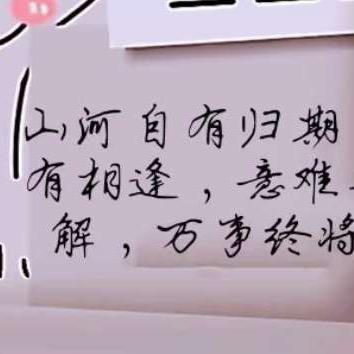 山河自有归期
有相逢，意难
解，万事终将